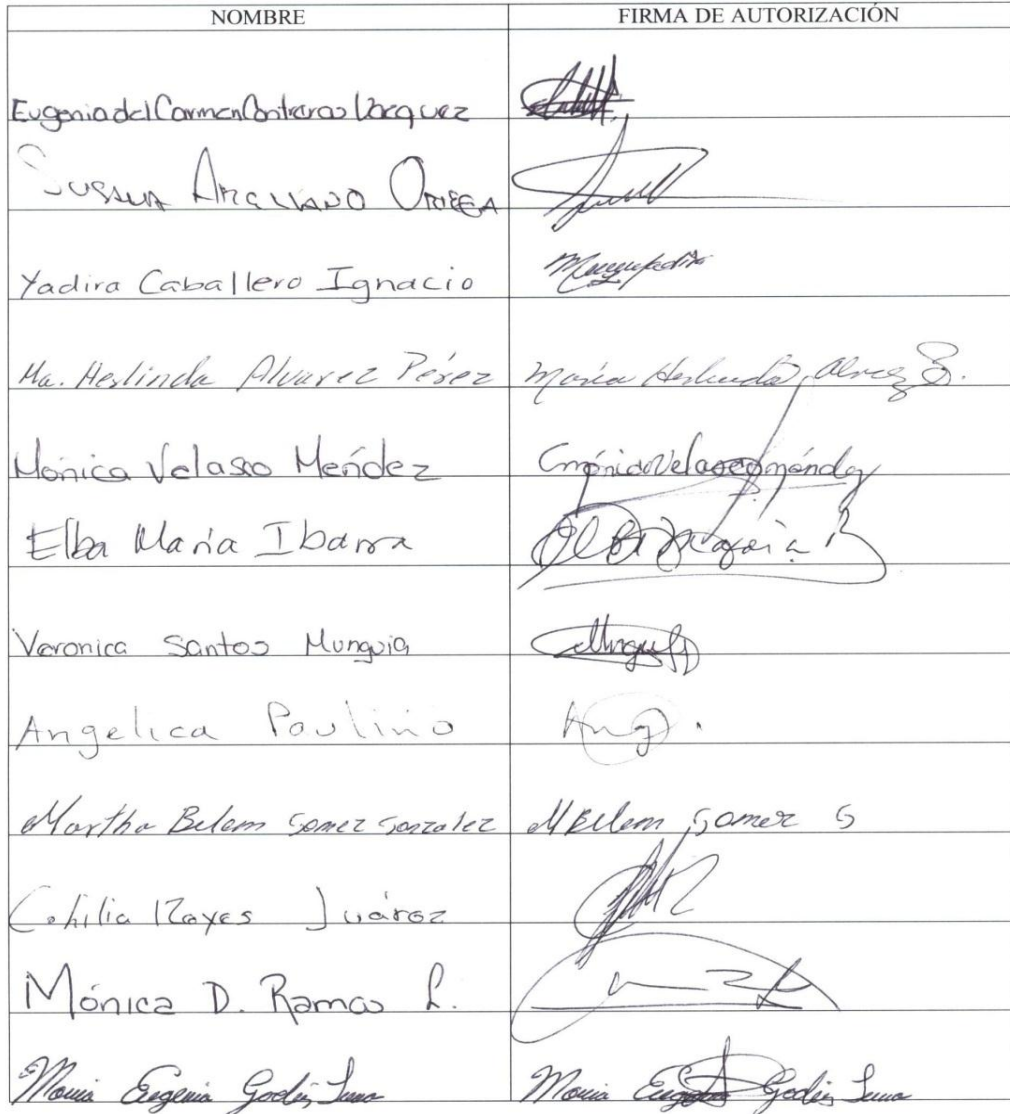 NOMBRE FIRMA DE AUTORIZACIÓN
Eugenia del Carmen Contreras Vazquez
Susana ORTEGA
Yadira Caballero Ignacio
Ma. Herlinda Alvarez Pérez María Herlinda
Mónica Velasco Meńdez Mónica Velasco Méndez
Elba María Ibarra
Veronica Santos Munguia
Angelica Paulino Ang.
Martha Belem Gomez Gonzalez M Belem Gomez G
Reyes Juárez
Mónica D. Ramos L.
Maria Eugenia Godinez Luna Maria Godinez Luna